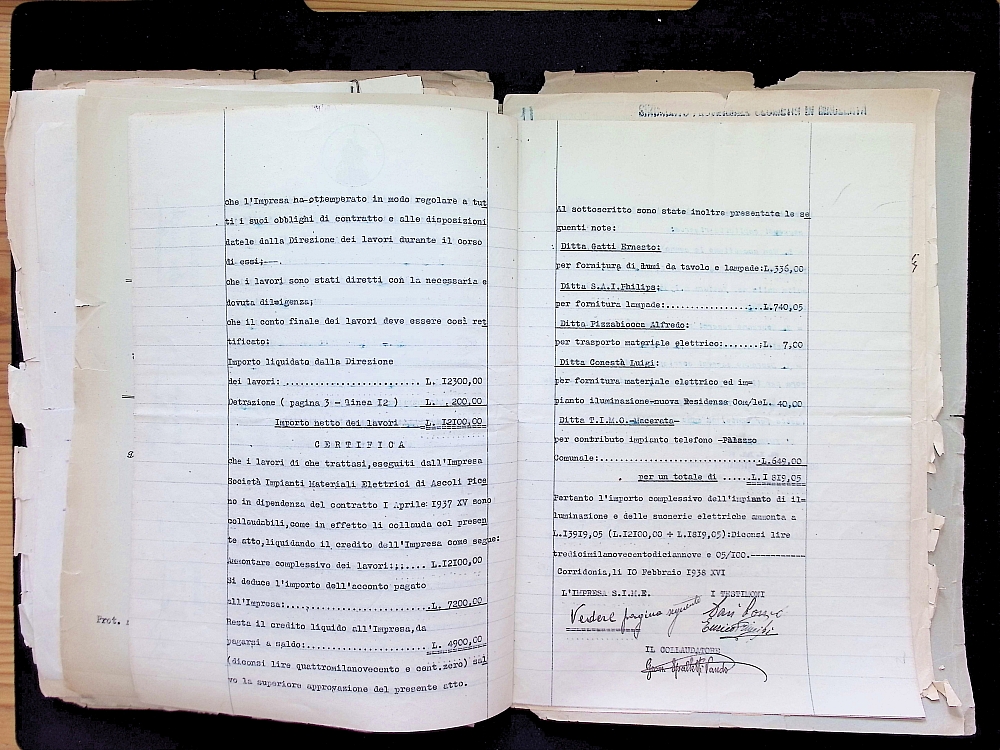 che l'Impresa ha ottemperato in modo regolare a tut
ti i suoi obblighi di contratto e alle disposizioni
datele dalla Direzione dei lavori durante il corso
di essi;
che i lavori sono stati diretti con la necessaria e
dovuta diligenza;
che il conto finale dei lavori deve essere così ret
tificato:
Importo liquidato dalla Direzione
dei lavori:...................... L. I2300,00
Detrazione ( pagina 3 - linea I2 ) L. . 200,00
Importo netto dei lavori L. I2I00,00
C E R T I F I C A
che i lavori di che trattasi,eseguiti dall'Impresa
Società Impianti Materiali Elettrici di Ascoli Pice
no in dipendenza del contratto I Aprile I937 XV sono
collaudabili,come in effetto li collauda col presen
te atto,liquidando il credito dell'Impresa come segue:
Ammontare complessivo dei lavori:;;.... L.I2I00,00
Si deduce l'importo dell'acconto pagato
all'Impresa:...................... L. 7200,00
Resta il credito liquido all'Impresa,da
pagarsi a saldo:................... L. 4900,00
(diconsi lire quattromilanovecento e cent.zero) sal
vo la superiore approvazione del presente atto.
Prot.
Al sottoscritto sono state inoltre presentate le se
guenti note:
Ditta Gatti Ernesto:
per fornitura di lumi da tavolo e lampade:L.336,00
Ditta S.A.I.Philips:
per fornitura lampade:................L.740,05
Ditta Pizzabiocca Alfredo:
per trasporto materiale elettrico:......;L. 7,00
Ditta Conestà Luigi:
per fornitura materiale elettrico ed im=
pianto iluminazione-nuova Residenza Com/leL. 40,00
Ditta T.I.M.O.-Macerata-
per contributo impianto telefono -Palazzo
Comunale:..........................L.649,00
per un totale di .....L.I 8I9,05
Pertanto l'importo complessivo dell'impianto di il=
luminazione e delle suonerie elettriche ammonta a
L.I39I9,05 (L.I2I00,00 + L.I8I9,05):Diconsi lire
tredicimilanovecentodiciannove e 05/I00.-----------
Corridonia,li I0 Febbraio I938 XVI
L'IMPRESA S.I.M.E. I TESTIMONI
Vedere pagina seguente
IL COLLAUDATORE